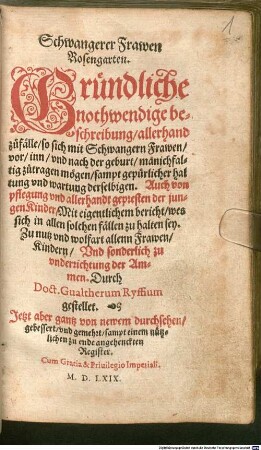 1
Schwangerer Frawen
Rosengarten.
Gründliche
nothwendige be-
schreibung/allerhand
zůfälle/so sich mit Schwangern Frawen/
vor/inn/vnd nach der geburt/mänichfal-
tig zůtragen mögen/sampt gepürlicher hal
tung vnd wartung derselbigen. Auch von
pflegung vnd allerhandt gepresten der jun-
gen Kinder/Mit eigentlichem bericht/wes
sich in allen solchen fällen zu halten sey.
Zu nutz vnd wolfart allenn Frawen/
Kindern/ Vnd sonderlich zu
vnderrichtung der Am-
men. Durch
Doct. Gualtherum Ryffium
gestellet.
Jetzt aber gantz von newem durchsehen/
gebessert/vnd gemehrt/sampt einem nütz-
lichen zu ende angehenckten
Register.
Cum Gratia & Priuilegio Imperiali.
M. D. LXIX.